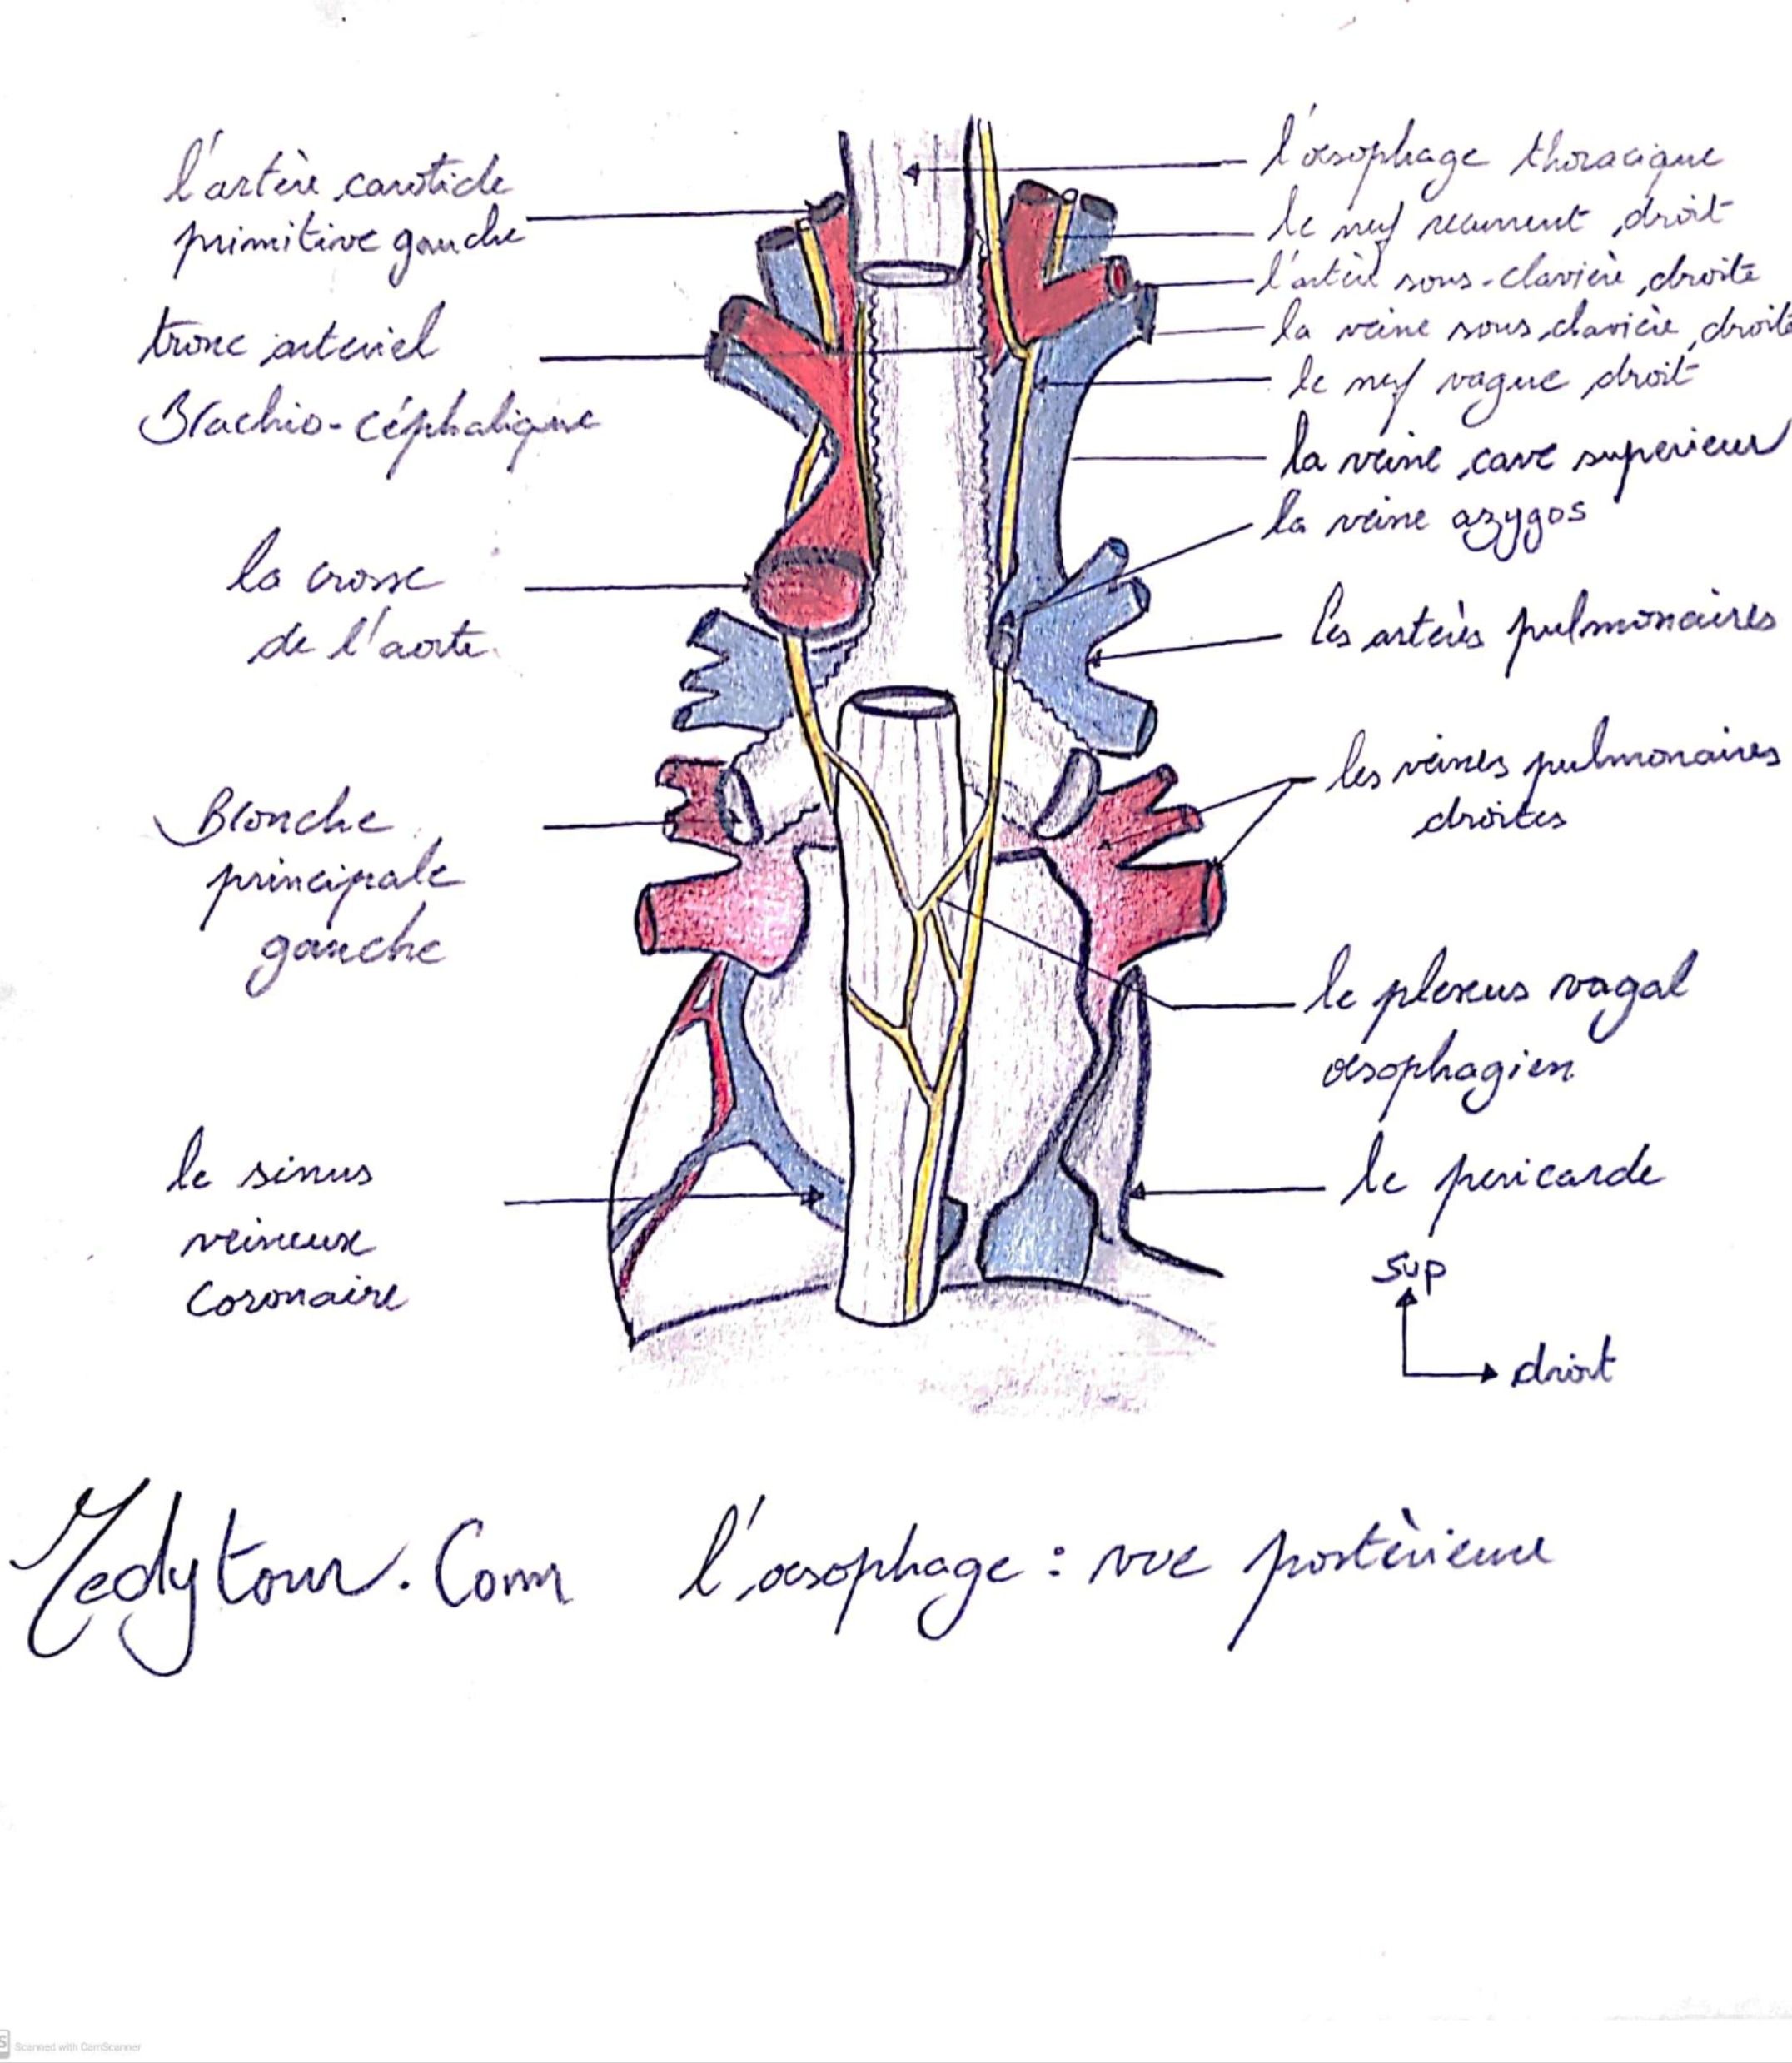 l'artère carotide
primitive gauche
tronc arteriel
Brachio-céphalique
la crosse
de l'aorte
Bronche
principale
gauche
le sinus
veineux
coronaire
l'œsophage thoracique
le nerf recurrent droit
l'artère sous-clavière droite
la veine sous clavière droite
le nerf vague droit
la veine cave superieur
la veine azygos
les artères pulmonaires
les veines pulmonaires
droites
le plexus vagal
œsophagien
le pericarde
sup
droit
Medytour.Com
l'œsophage : vue postèrieure
Scanned with CamScanner